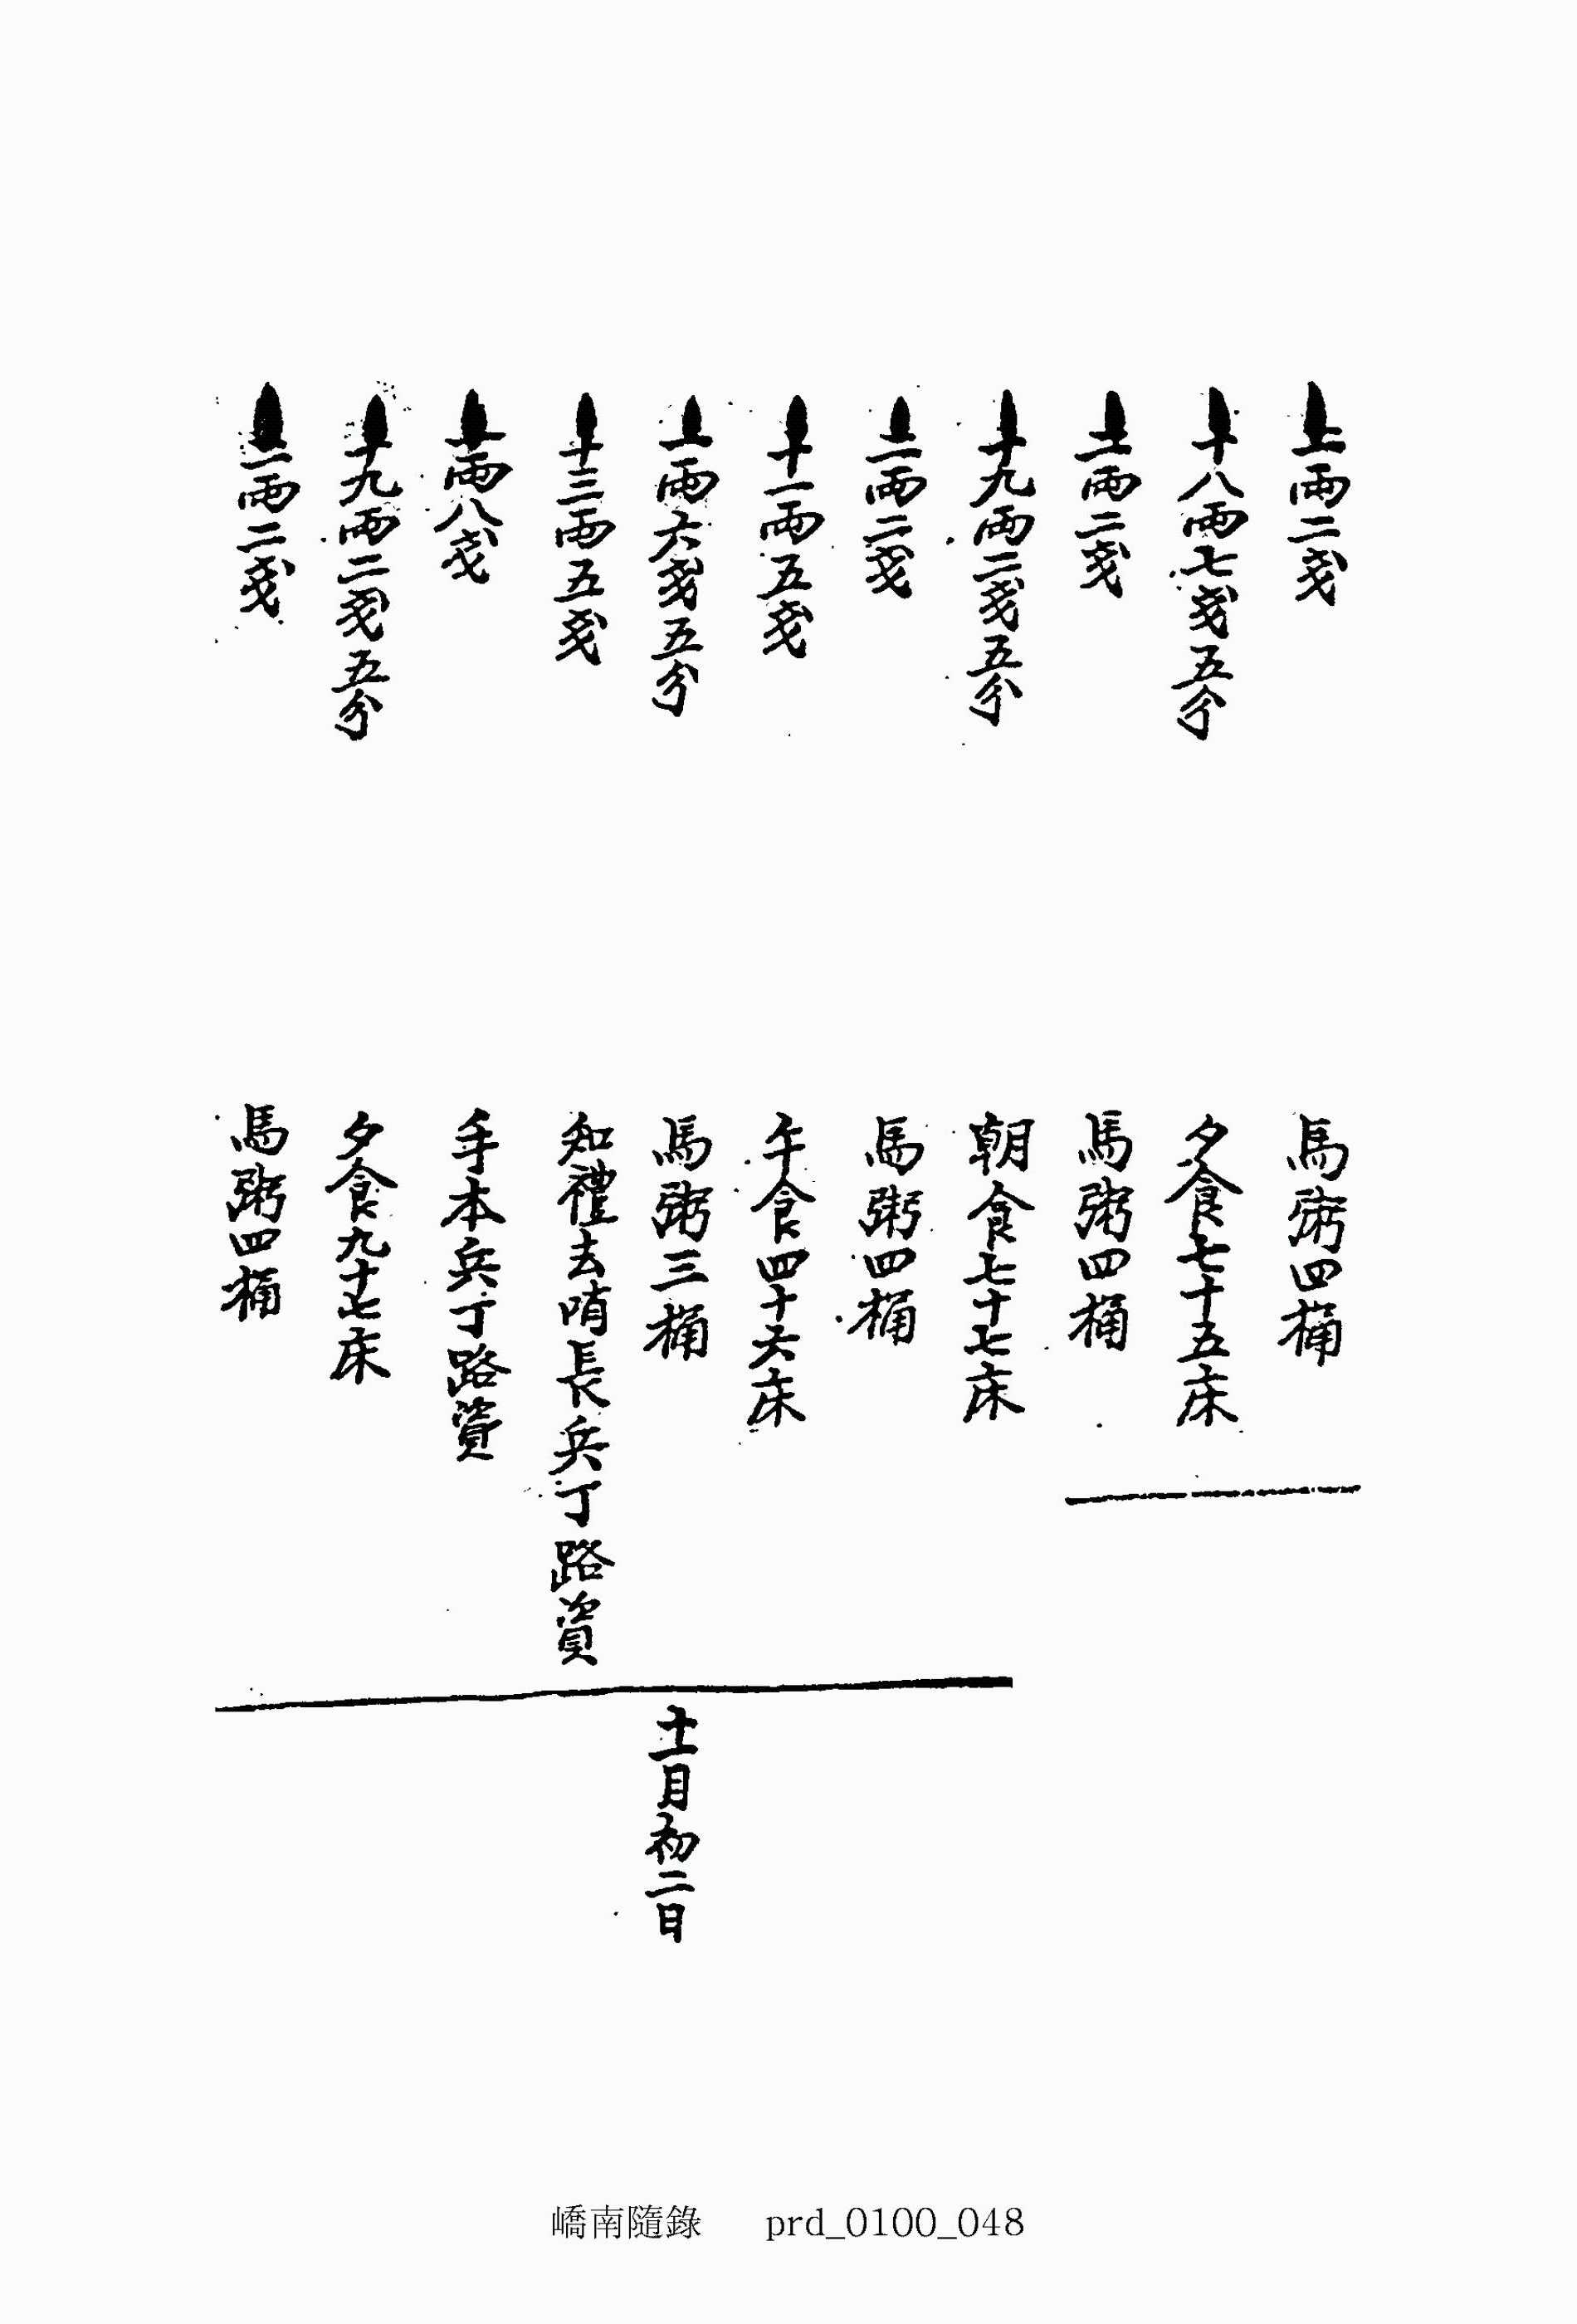 二兩二戔 馬粥四桶
十八兩七戔五分 夕食七十五床
二兩二戔 馬粥四桶
十九兩二戔五分 朝食七十七床
二兩二戔 馬粥四桶
十一兩五戔 午食四十六床
一兩六戔五分 馬粥三桶
十三兩五戔 知禮去哨長兵丁路資
一兩八戔 手本兵丁路資
十九兩二戔五分 夕食九十七床
二兩二戔 馬粥四桶
十一月初二日
嶠南隨錄 prd_0100_048